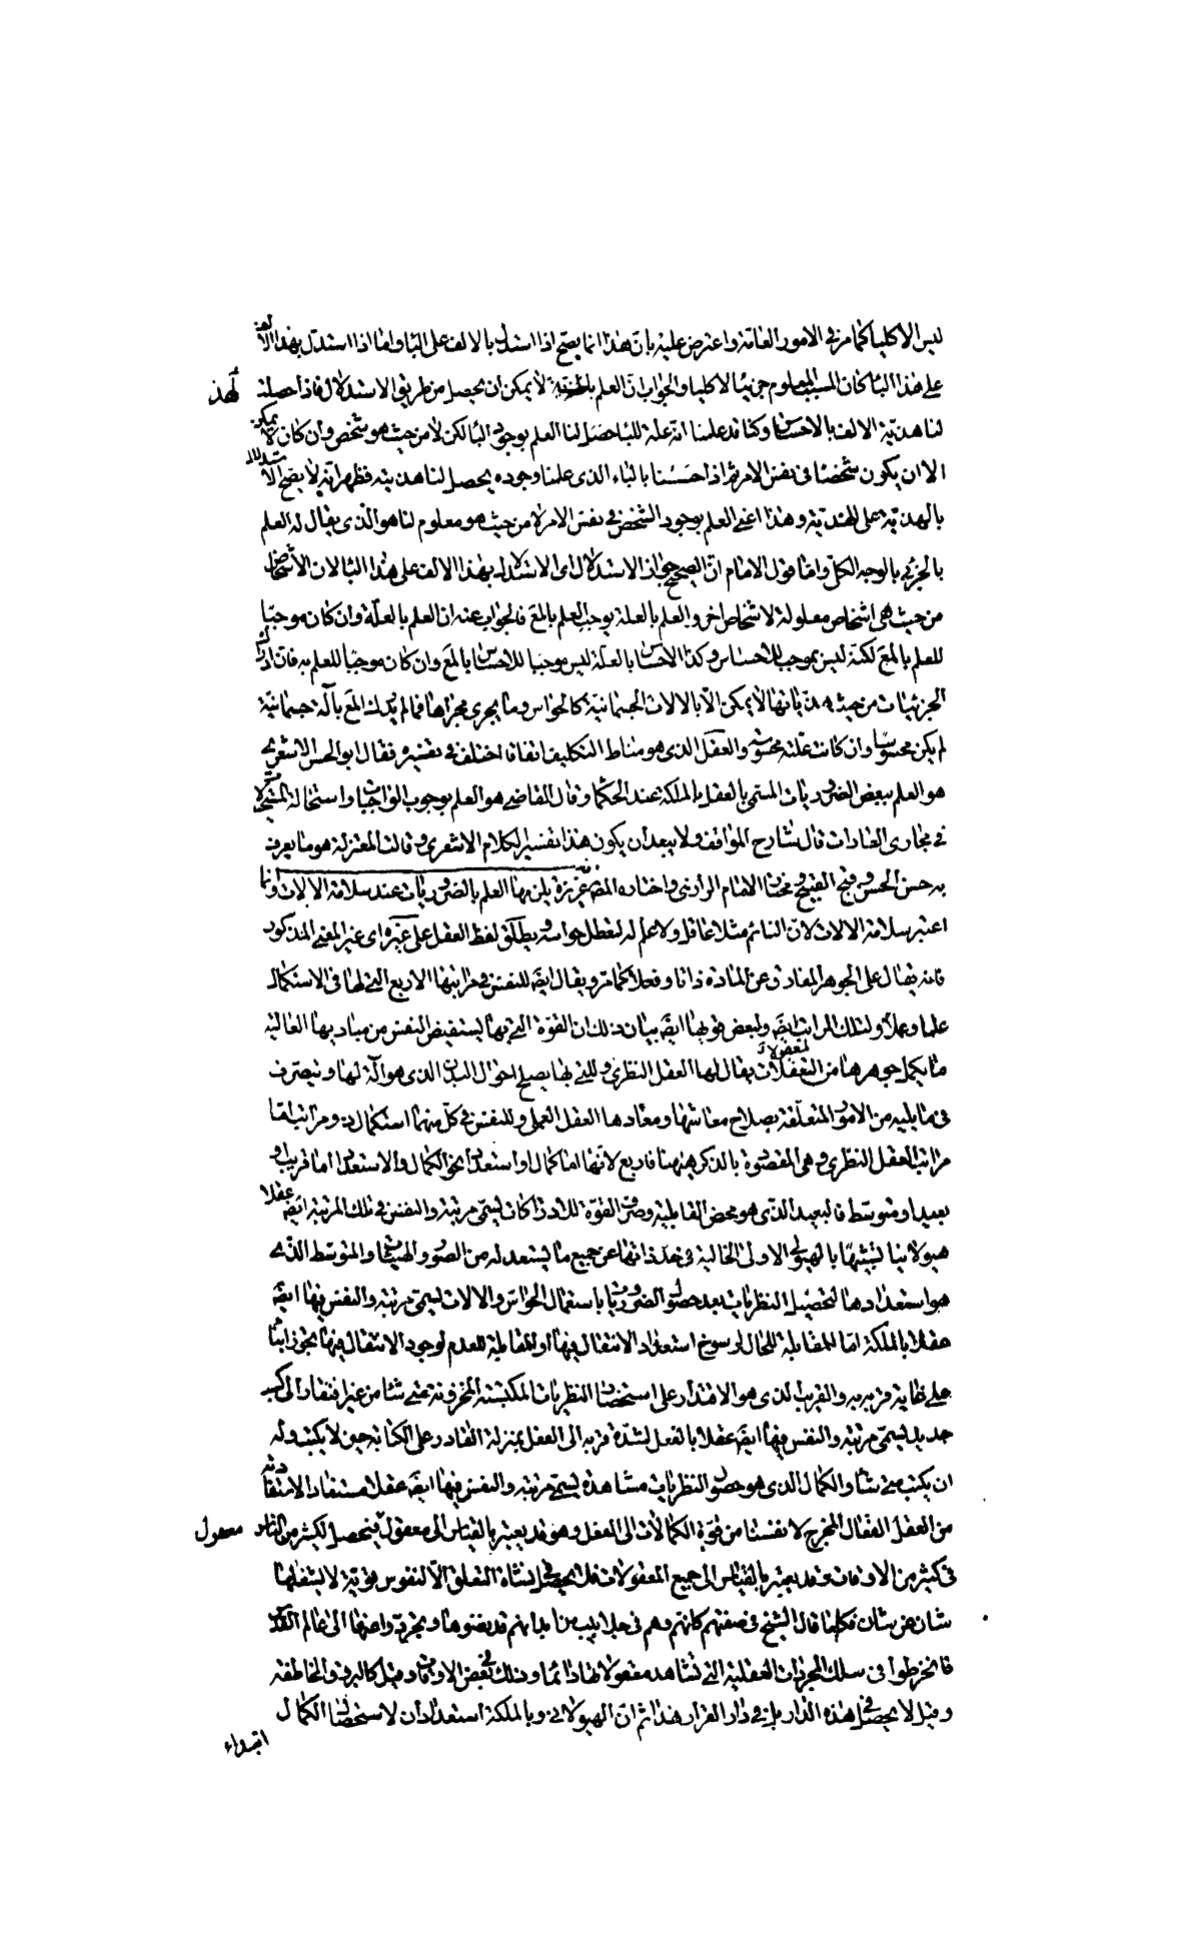 ليس الا كليا كما مر في الامور العامة واعترض عليه بان هذا انما يصح اذا استدل بالالف على الباء واما اذا استدل بهذا الالف
على هذا الباء كان المسبب المعلوم جزئيا لا كليا والجواب ان العلم لا يمكن ان يحصل من طريق الاستدلال فاذا حصلت
لنا هذية الالف بالاحساس وكنا قد علمنا انه علة للباء حصل لنا العلم بوجود الباء لكن لا من حيث هو شخص وان كان لا يمكن
الا ان يكون شخصا في نفس الامر ثم اذا احسسنا بالباء الذي علمنا وجوده يحصل لنا هذيته فظهر انه لا يصح الاستدلال
بالهذية على الهذية وهذا اعني العلم بوجود الشخص في نفس الامر لا من حيث هو معلوم لنا هو الذي يقال له العلم
بالجزئي بالوجه الكلي واما قول الامام ان الصحيح جواز الاستدلال اى الاستدلال بهذا الالف على هذا الباء لان الاشخاص
من حيث هى اشخاص معلولة لاشخاص اخر والعلم بالعلة يوجب العلم بالمع فالجواب عنه ان العلم بالعلة وان كان موجبا
للعلم بالمع لكنه ليس بموجب للاحساس وكذا الاحساس بالعلة ليس موجبا للاحساس بالمع وان كان موجبا للعلم به فان ادراك
الجزئيات من حيث هذياتها لا يمكن الا بالالات الجسمانية كالحواس وما يجرى مجراها فما لم يدرك المع بآلة جسمانية
لم يكن محسوسا وان كانت علته محسوسة والعقل الذى هو مناط التكليف اتفاقا اختلف في تفسيره فقال ابو الحسن الاشعرى
هو العلم ببعض الضروريات المسمى بالعقل بالملكة عند الحكماء وقال القاضى هو العلم بوجوب الواجبات واستحالة المستحيلات
في مجارى العادات قال شارح المواقف ولا يبعد ان يكون هذا تفسيرا لكلام الاشعرى وقالت المعتزلة هو ما يعرف
به حسن الحسن وقبح القبيح ومختار الامام الرازى واختاره المصه غريزة يلزمها العلم بالضروريات عند سلامة الالات وانما
اعتبر سلامة الالات لان النائم مثلا عاقل ولا علم له لتعطل حواسه ويطلق لفظ العقل على غيره اى غير المعنى المذكور
فانه يقال على الجوهر المفارق عن المادة ذاتا وفعلا كما مر ويقال ايضه للنفس في مراتبها الاربع التى لها في الاستكمال
علما وعملا ولتلك المراتب ايضه ولبعض قويها ايضه بيان ذلك ان القوة التى بها يستفيض النفس من مباديها العالية
ما يكمل جوهرها من التعقلات يقال لها العقل النظرى والتى بها يصلح احوال البدن الذى هو آلة لها ويتصرف
في ما يليه من الامور المتعلقة بصلاح معاشها ومعادها العقل العملى وللنفس في كل منهما استكمال ومراتب اما
مراتب العقل النظرى وهى المقصودة بالذكر ههنا فاربع لانها اما كمال او استعداد نحو الكمال والاستعداد اما قريب او
بعيد او متوسط فالبعيد الذى هو محض القابلية وصرف القوة للادراكات يسمى مرتبة والنفس في تلك المرتبة ايضه عقلا
هيولانيا لشبهها بالهيولى الاولى الخالية في حد ذاتها عن جميع ما يستعد له من الصور والهيئات والمتوسط الذى
هو استعدادها لتحصيل النظريات بعد حصول الضروريات باستعمال الحواس والالات ليسمى مرتبة والنفس فيها ايضه
عقلا بالملكة اما للمقابلة للحال لرسوخ استعداد الانتقال فيها او للمقابلة للعدم لوجود الانتقال فيها
على غاية قربه والقريب الذى هو الاقتدار على استحضار النظريات المكتسبة المخزونة متى شاء من غير افتقار الى كسب
جديد ليسمى مرتبة والنفس فيها ايضه عقلا بالفعل لشدة قربه الى الفعل بمنزلة القادر على الكتابة حين لا يكتب وله
ان يكتب متى شاء والكمال الذى هو حصول النظريات مشاهدة يسمى مرتبة والنفس فيها ايضه عقلا مستفادا لاستفادته
من العقل الفعال المخرج لانفسنا من قوة الكمالات الى الفعل وهو قد يعتبر بالقياس الى معقول معقول فيحصل لكثير من الناس
في كثير من الاوقات وقد يعتبر بالقياس الى جميع المعقولات فلا يحصل في نشاة التعلق الا لنفوس قوية لا يشغلها
شان عن شان فكما قال الشيخ في صفتهم كانهم وهم في جلابيب من ابدانهم قد نضوها وتجردوا عنها الى عالم القدس
فانخرطوا في سلك المجردات العقلية التى تشاهد معقولاتها دائما وذلك في بعض الاوقات وقيل كالبروق الخاطفة
وقيل لا يحصل في هذه الدار بل في دار القرار هذا ثم ان الهيولانى وبالملكة استعدادان لاستحصال الكمال
ابتداء